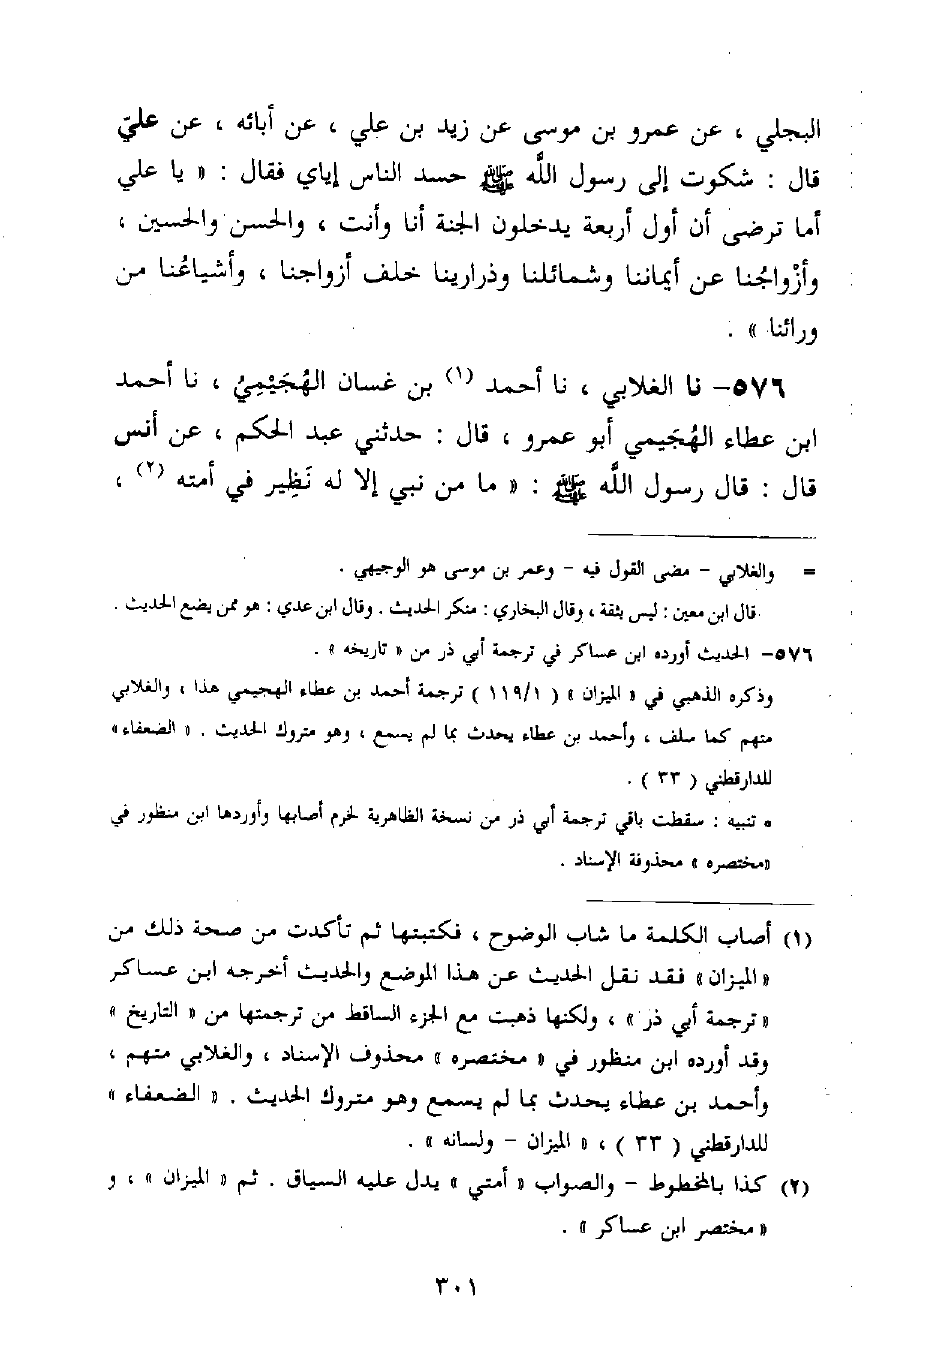 البجلي ، عن عمرو بن موسى عن زيد بن علي ، عن أبائه ، عن عليّ
قال : شكوت إلى رسول اللَّه ﷺ حسد الناس إياي فقال : « يا علي
أما ترضى أن أول أربعة يدخلون الجنة أنا وأنت ، والحسن والحسين ،
وأزْواجُنا عن أيماننا وشمائلنا وذرارينا خلف أزواجنا ، وأشياعُنا من
ورائنا » .
٥٧٦– نا الغلابي ، نا أحمد (١) بن غسان الهُجَيْمِيُ ، نا أحمد
ابن عطاء الهُجَيمي أبو عمرو ، قال : حدثني عبد الحكم ، عن أنس
قال : قال رسول اللَّه ﷺ : « ما من نبي إلا له نَظِير في أمته (٢) ،
= والغلابي – مضى القول فيه – وعمر بن موسى هو الوجيهي .
قال ابن معين : ليس بثقة ، وقال البخاري : منكر الحديث . وقال ابن عدي : هو ممن يضع الحديث .
٥٧٦– الحديث أورده ابن عساكر في ترجمة أبي ذر من « تاريخه » .
وذكره الذهبي في « الميزان » ( ١١٩/١ ) ترجمة أحمد بن عطاء الهجيمي هذا ، والغلابي
متهم كما سلف ، وأحمد بن عطاء يحدث بما لم يسمع ، وهو متروك الحديث . « الضعفاء »
للدارقطني ( ٣٣ ) .
• تنبيه : سقطت باقي ترجمة أبي ذر من نسخة الظاهرية لخرم أصابها وأوردها ابن منظور في
«مختصره » محذوفة الإسناد .
(١) أصاب الكلمة ما شاب الوضوح ، فكتبتها ثم تأكدت من صحة ذلك من
« الميزان » فقد نقل الحديث عن هذا الموضع والحديث أخرجه ابن عساكر
« ترجمة أبي ذر » ، ولكنها ذهبت مع الجزء الساقط من ترجمتها من « التاريخ »
وقد أورده ابن منظور في « مختصره » محذوف الإسناد ، والغلابي متهم ،
وأحمد بن عطاء يحدث بما لم يسمع وهو متروك الحديث . « الضعفاء »
للدارقطني ( ٣٣ ) ، « الميزان – ولسانه » .
(٢) كذا بالمخطوط – والصواب « أمتي » يدل عليه السياق . ثم « الميزان » ، و
« مختصر ابن عساكر » .
٣٠١